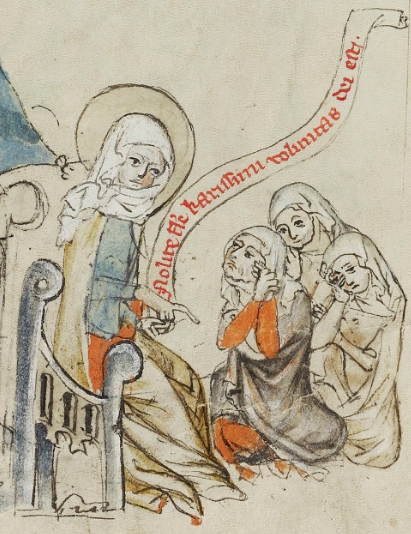 Nolite fle karissimi voluntas dei est.